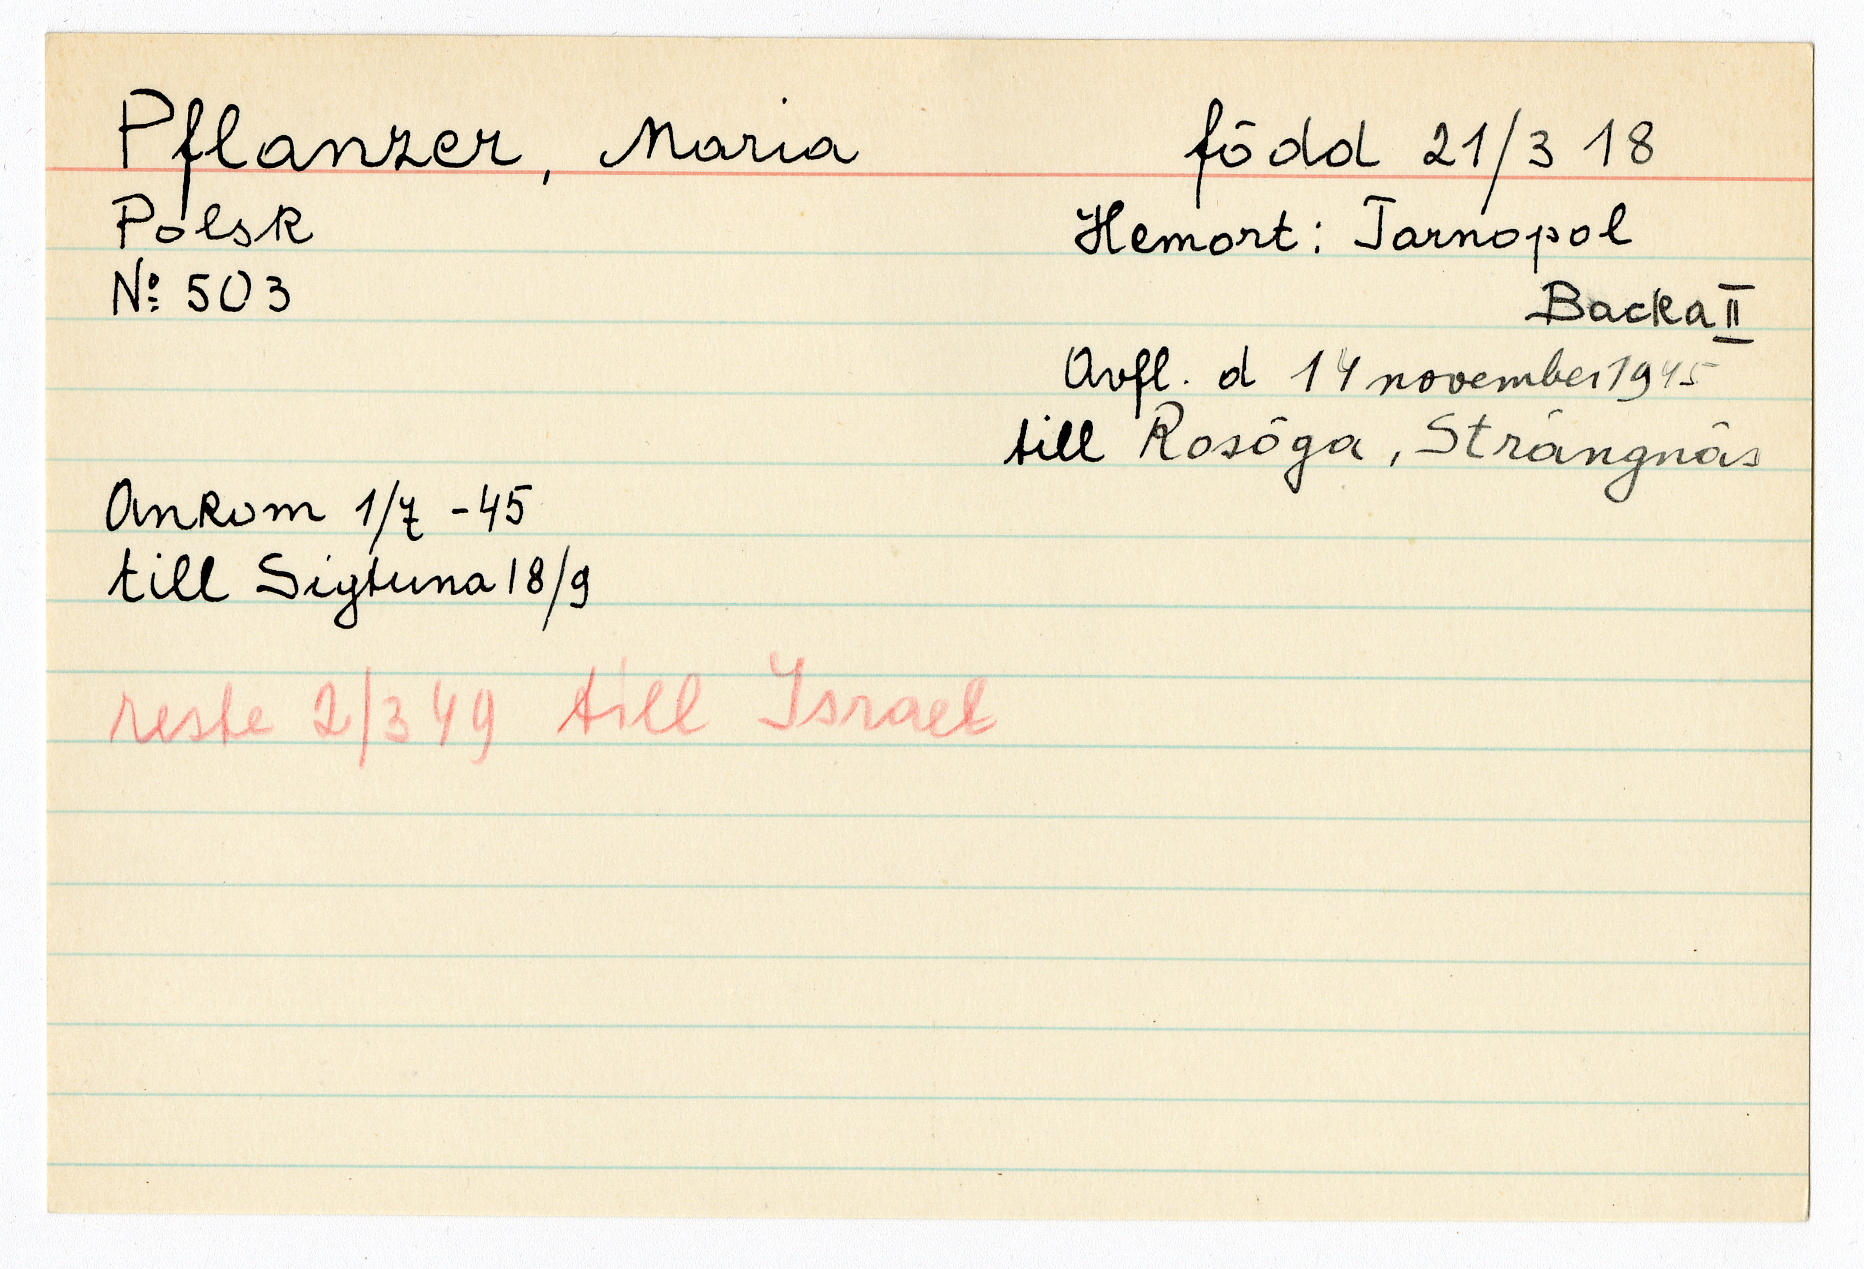 Pflanzer, Maria född 21/3 18
Polsk Hemort: Tarnopol
No: 503 Backa II
Avfl. d 14 november 1945
till Rosöga, Strängnäs
Ankom 1/7 -45
till Sigtuna 18/9
reste 2/3 49 till Israel